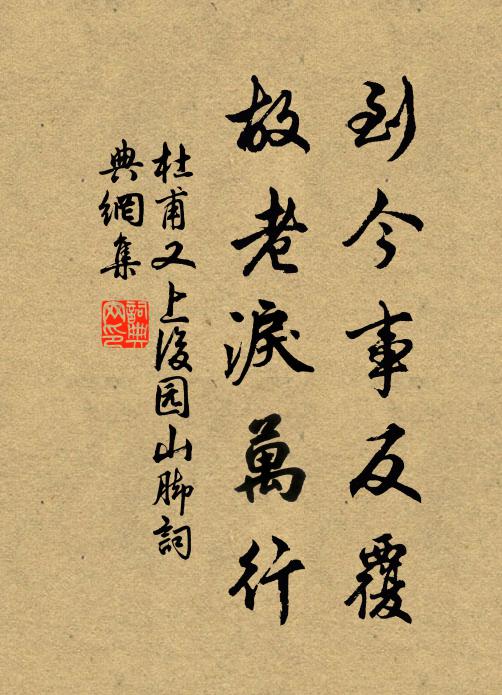 到今事反覆
故老淚萬行
杜甫又上後园山脚詞
典網集
詞典網印